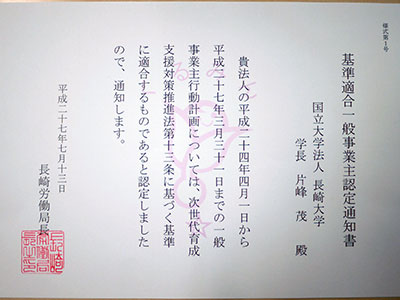 様式第1号
基準適合一般事業主認定通知書
国立大学法人 長崎大学
学長 片峰 茂 殿
貴法人の平成二十四年四月一日から
平成二十七年三月三十一日までの一般
事業主行動計画については、次世代育成
支援対策推進法第十三条に基づく基準
に適合するものであると認定しました
ので、通知します。
平成二十七年七月十三日
長崎労働局長